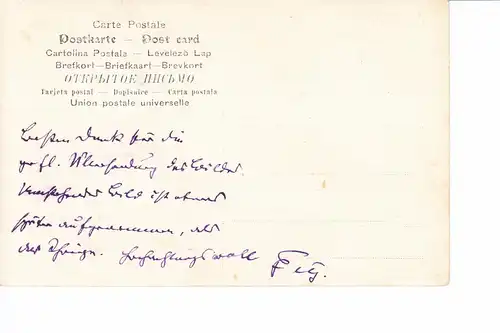 Carte Postale
Postkarte — Post card
Cartolina Postale — Levelező Lap
Brefkort—Briefkaart—Brevkort
ОТКРЫТОЕ ПИСЬМО
Tarjeta postal — Dopisnice — Carta postala
Union postale universelle
Besten Dank für die
gefl. Übersendung des Bildes.
Umstehendes Bild ist etwas
später aufgenommen, als
das Ihrige. Hochachtungsvoll